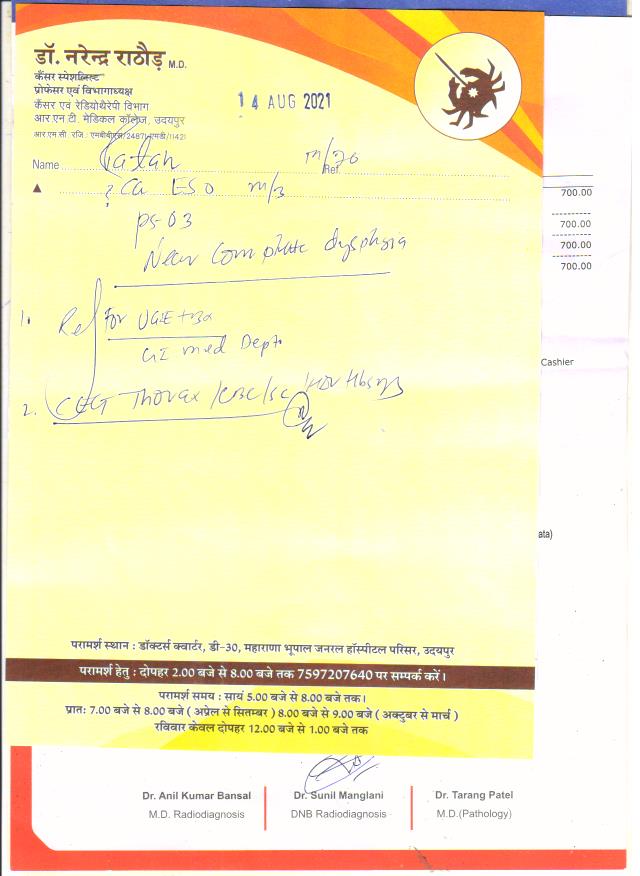 डॉ. नरेन्द्र राठौड़ M.D.
कैंसर स्पेशलिस्ट
प्रोफेसर एवं विभागाध्यक्ष
कैंसर एवं रेडियोथैरेपी विभाग
आर.एन.टी. मेडिकल कॉलेज, उदयपुर
आर एम सी रजि.: एमबीबीएस/24871-एमडी/11421
14 AUG 2021
Name Ratan m/70
Ref.
? Ca ESO m/3
PS-03
Near Complete dysphagia
1. Ref For UGIE + Bx
GI med Dept.
2. CECT Thorax /CBC/SC/HIV HbsAg
700.00
700.00
700.00
700.00
Cashier
ata)
परामर्श स्थान : डॉक्टर्स क्वार्टर, डी-30, महाराणा भूपाल जनरल हॉस्पीटल परिसर, उदयपुर
परामर्श हेतु : दोपहर 2.00 बजे से 8.00 बजे तक 7597207640 पर सम्पर्क करें।
परामर्श समय : सायं 5.00 बजे से 8.00 बजे तक।
प्रात: 7.00 बजे से 8.00 बजे ( अप्रेल से सितम्बर ) 8.00 बजे से 9.00 बजे ( अक्टुबर से मार्च )
रविवार केवल दोपहर 12.00 बजे से 1.00 बजे तक
Dr. Anil Kumar Bansal
M.D. Radiodiagnosis
Dr. Sunil Manglani
DNB Radiodiagnosis
Dr. Tarang Patel
M.D.(Pathology)